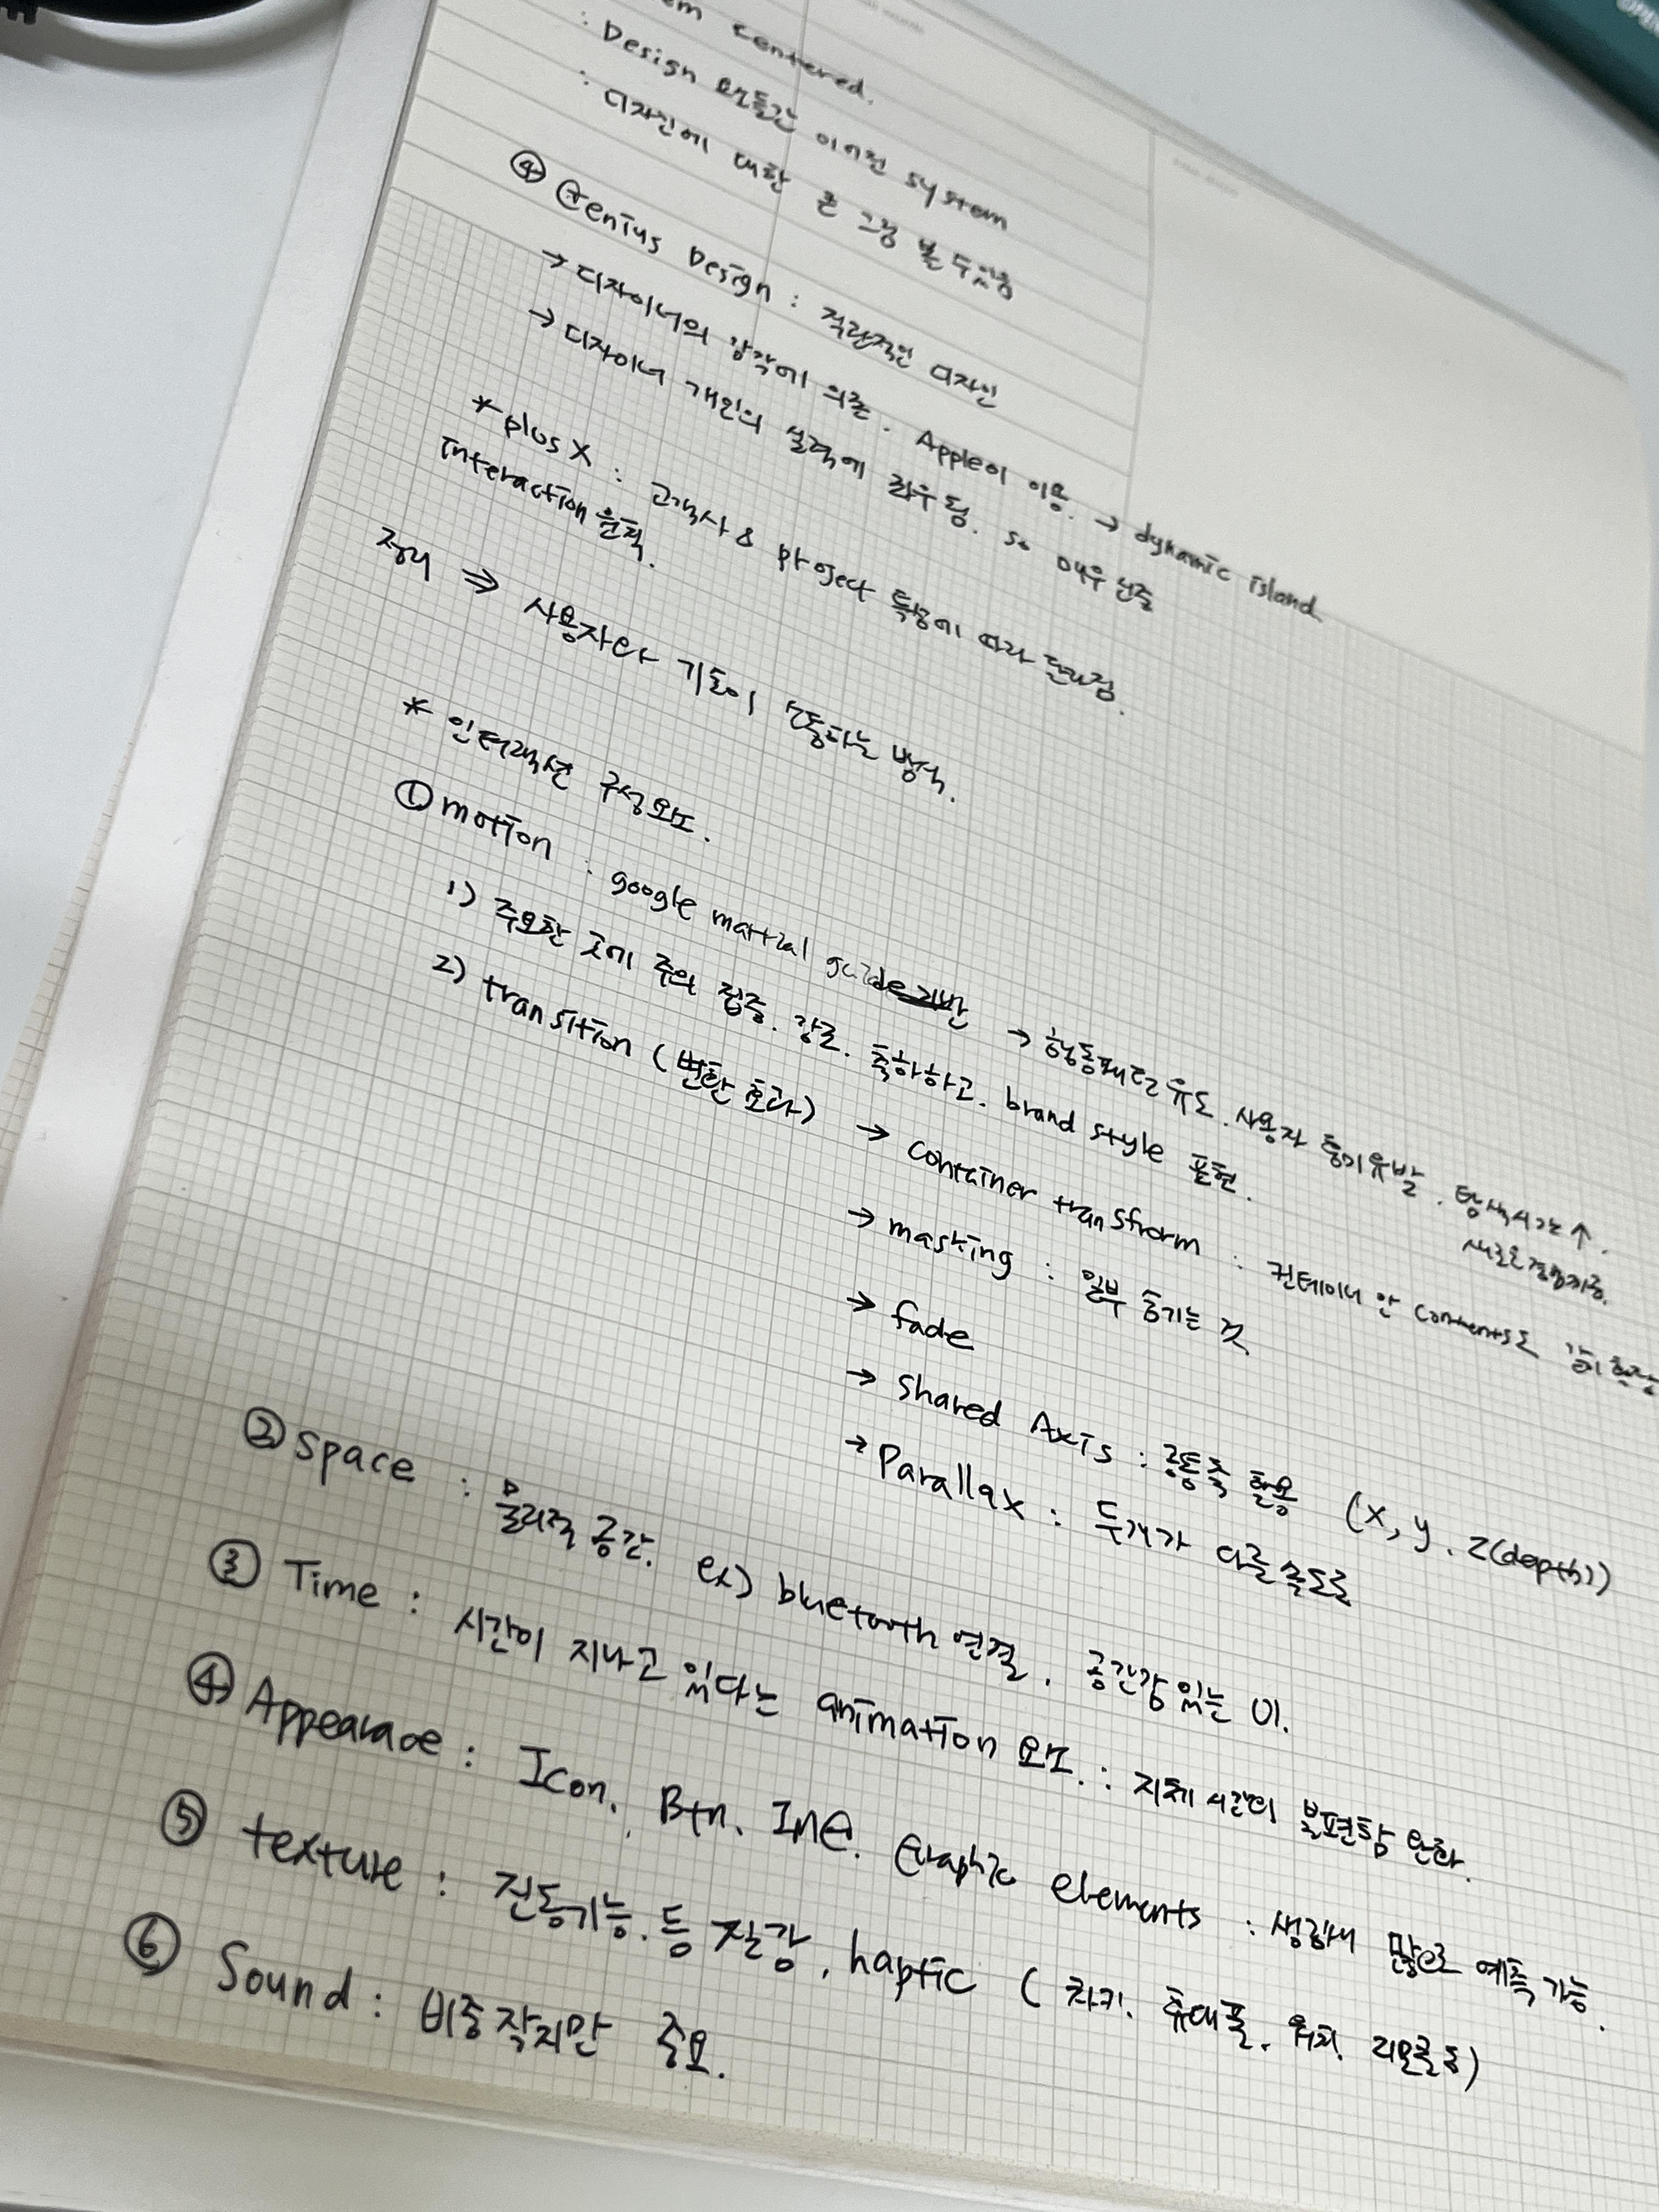 em centered.
: Design 요소들간 이어진 system
: 디자인에 대한 큰 그림 볼 수 있음
④ Genius Design : 직관적인 디자인
→ 디자이너의 감각에 의존. Apple이 이용. → dynamic island
→ 디자이너 개인의 실력에 좌우됨. so 매우 신중
* plus X : 고객사 & project 특성에 따라 달라짐.
Interaction 원칙.
정리 ⇒ 사용자와 기능이 소통하는 방식.
* 인터랙션 구성요소.
① motion : google matrial guide 기반 → 행동패턴 유도. 사용자 흥미유발. 탐색시간 ↑.
새로운 경험제공.
1) 주요한 곳에 주의 집중. 강조. 축하하고. brand style 표현.
2) transition (변환 효과) → container transfrorm : 컨테이너 안 contents도 같이 확장
→ masking : 일부 숨기는 것
→ fade
→ Shared Axis : 공통축 활용 (x, y, z(depth))
→ Parallax : 두개가 다른 속도로
② Space : 물리적 공간. ex) bluetooth 연결. 공간감 있는 UI.
③ Time : 시간이 지나고 있다는 animation 요소. : 지체 시간의 불편함 완화.
④ Appearace : Icon. Btn. Graphic elements : 생김새 만으로 예측 가능.
⑤ texture : 진동기능. 등 질감, haptic ( 차키. 휴대폰. 워치. 리모콘 등)
⑥ Sound : 비중 작지만 중요.